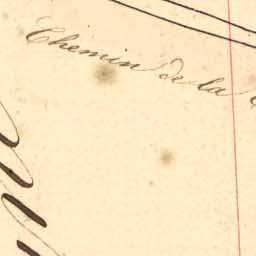 Chemin de la